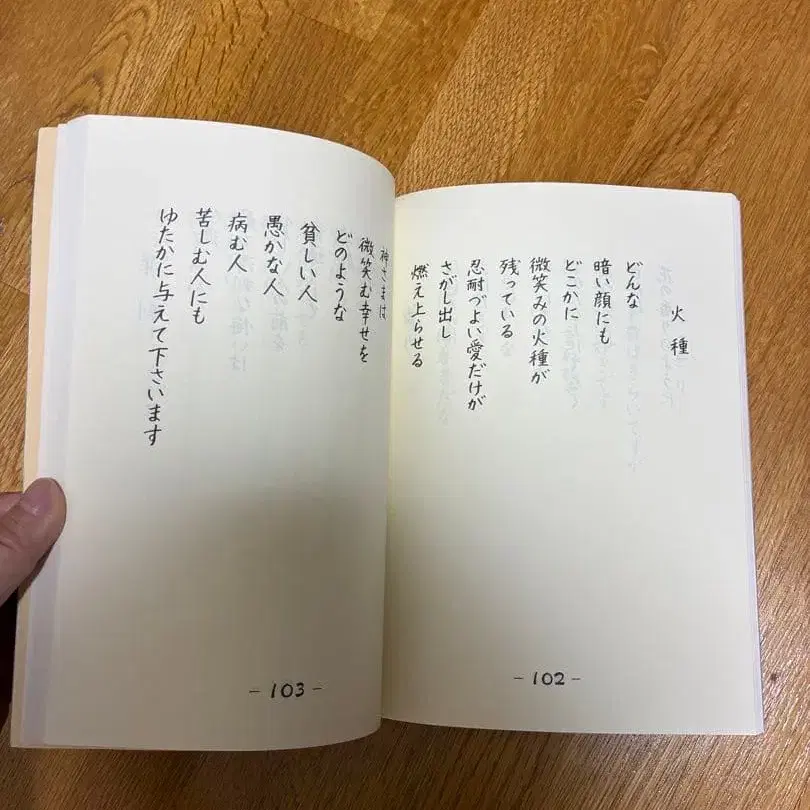 火種
どんな
暗い顔にも
どこかに
微笑みの火種が
残っている
忍耐づよい愛だけが
さがし出し
燃え上らせる
-102-
神さまは
微笑む幸せを
どのような
貧しい人
愚かな人
病む人
苦しむ人にも
ゆたかに与えて下さいます
-103-